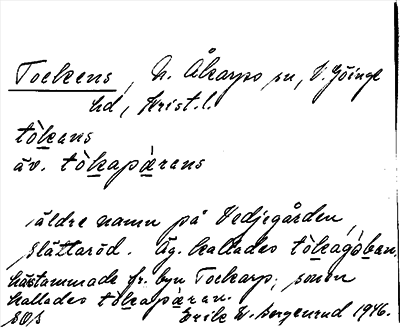 Tockens, N. Åkarps sn, V. Göinge
hd, Krist. l.
tò̱ke̱ns
äv. tò̱ka̱pæ̱rens
äldre namn på Vedjegården,
Slättaröd. Äg. kallades tò̱ka̱gò̱ban,
härstammade fr. byn Tockarp; sonen
kallades tò̱ka̱pæ̱ran.
SOS Erik W. Bergenrud 1946.